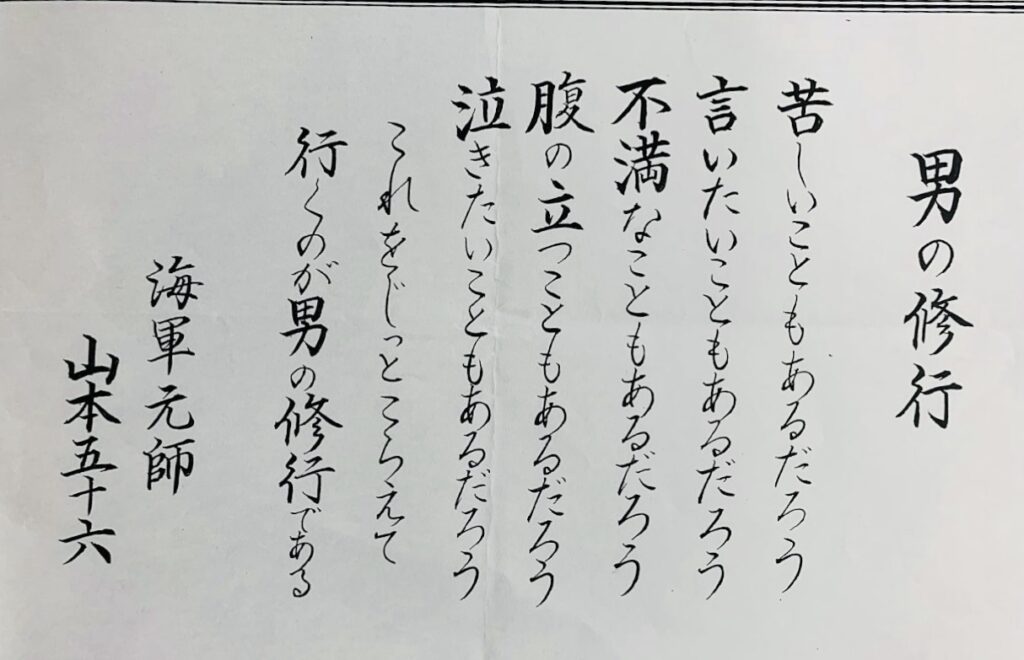 男の修行
苦しいこともあるだろう
言いたいこともあるだろう
不満なこともあるだろう
腹の立つこともあるだろう
泣きたいこともあるだろう
これをじっとこらえて
行くのが男の修行である
海軍元師
山本五十六